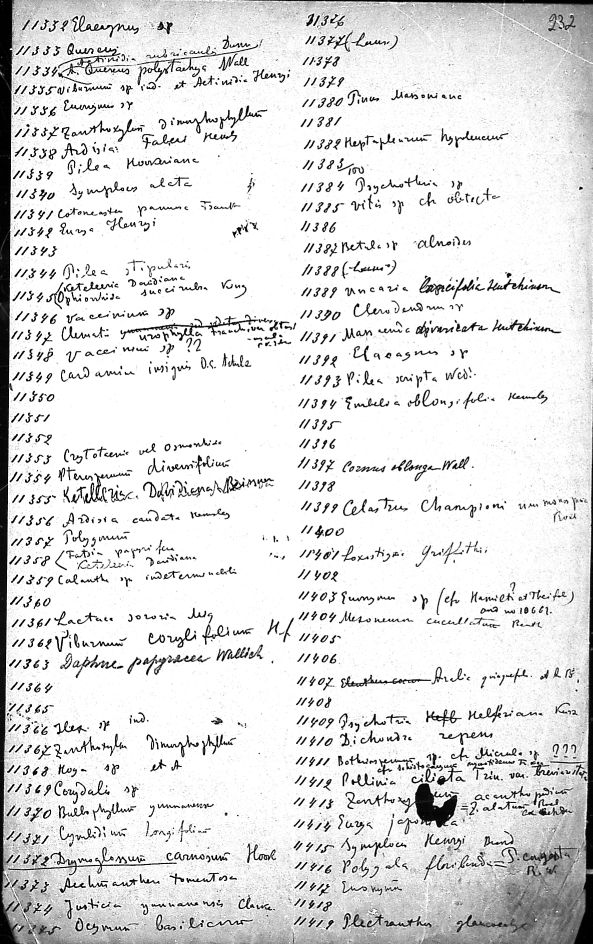 232
11332 Elaeagnus sp
11333 Quercus
Actinidia rubricaulis Dunn
11334 Quercus polystachya Wall
11335 Viburnum sp ind. et Actinidia Henryi
11336 Evonymus sp
11337 Zanthoxylum dimorphophyllum
11338 Ardisia Faberi Hemsl
11339 Pilea
11340 Symplocos alata
11341 Cotoneaster pannosa Franch
11342 Eurya Henryi
11343
11344 Pilea stipulosa
11345 Keteleeria Davidiana
Ophiorrhiza succirubra King
11346 Vaccinium sp
11347 Clematis urophylla Franch
11348 Vaccinium sp ??
11349 Cardamine insignis O.E. Schulz
11350
11351
11352
11353 Cryptotaenia vel Osmorhiza
11354 Pterospermum diversifolium
11355 Keteleeria Davidiana Beissner
11356 Ardisia caudata Hemsley
11357 Polygonum
11358 Fatsia papyrifera
Keteleeria Davidiana
11359 Calanthe sp indeterminabilis
11360
11361 Lactuca sororia Miq
11362 Viburnum corylifolium H f
11363 Daphne papyracea Wallich
11364
11365
11366 Ilex sp ind.
11367 Zanthoxylum Dimorphophyllum
11368 Hoya sp et A
11369 Corydalis sp
11370 Bulbophyllum yunnanense
11371 Cymbidium longifolium
11372 Drymoglossum carnosum Hook
11373 Aechmanthera tomentosa
11374 Justicia yunnanensis
11375 Ocymum basilicum
11376
11377 (-Laur.)
11378
11379
11380 Pinus Massoniana
11381
11382 Heptapleurum hypoleucum
11383
11384 Psychotria sp
11385 Vitis sp cfr obtecta
11386
11387 Betula sp alnoides
11388 (-Laur-)
11389 Uncaria laevifolia Hutchinson
11390 Clerodendron sp
11391 Mussaenda divaricata Hutchinson
11392 Elaeagnus sp
11393 Pilea scripta Wedd.
11394 Embelia oblongifolia Hemsley
11395
11396
11397 Cornus oblonga Wall.
11398
11399 Celastrus Championi
11400
11401 Loxostigma Griffithii
11402
11403 Evonymus sp (cfr Hamilt? et Theifol)
and no 10661.
11404 Mezoneurum cucullatum Benth
11405
11406
11407 Aralia
11408
11409 Psychotria Helferiana Kurz
11410 Dichondra repens
11411 Bothriospermum sp. cfr Microula sp ???
11412 Pollinia ciliata Trin. var. breviaristata
11413 Zanthoxylum acanthopodium
= Z. alatum Roxb
11414 Eurya japonica
11415 Symplocos Henryi Brand
11416 Polygala floribunda = P. congesta
11417 Evonymus
11418
11419 Plectranthus glaucocalyx